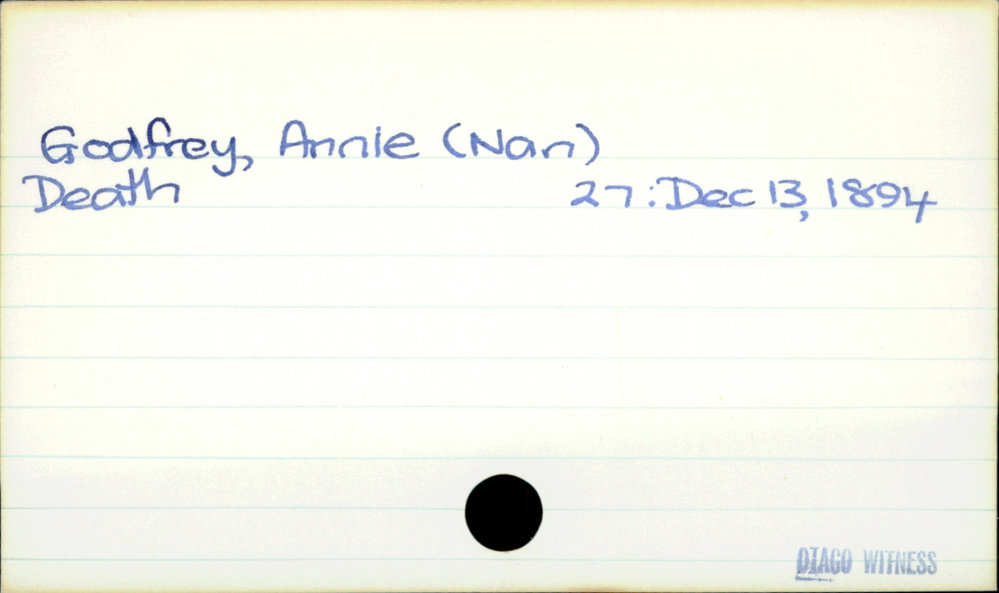 Godfrey, Annie (Nan)
Death 27: Dec 13, 1894
OTAGO WITNESS